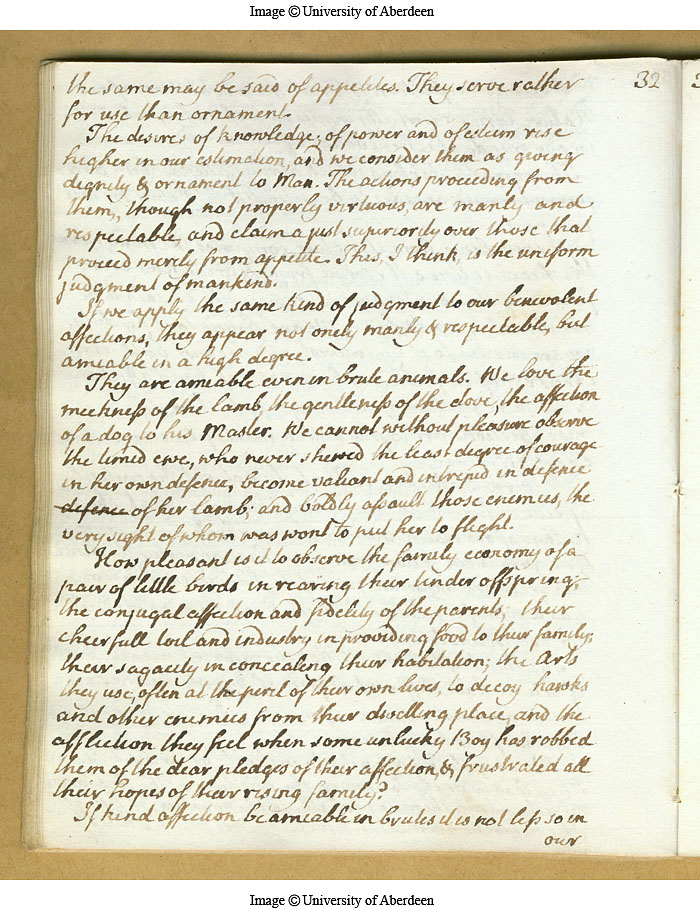 Image © University of Aberdeen
32
the same may be said of appetites. They serve rather
for use than ornament.
The desires of knowledge, of power and of esteem rise
higher in our estimation, and we consider them as giving
dignity & ornament to Man. The actions proceeding from
them, though not properly virtuous, are manly and
respectable, and claim a just superiority over those that
proceed merely from appetite. This, I think, is the uniform
judgment of mankind.
If we apply the same kind of judgment to our benevolent
affections, they appear not onely manly & respectable, but
amiable in a high degree.
They are amiable even in brute animals. We love the
meekneſs of the lamb, the gentleneſs of the dove, the affection
of a dog to his Master. We cannot without pleasure observe
the timid ewe, who never shewed the least degree of courage
in her own defence, become valiant and intrepid in defence
defence of her lamb; and boldly aſsault those enemies, the
very sight of whom was wont to put her to flight.
How pleasant is it to observe the family economy of a
pair of little birds in rearing their tender offspring;
the conjugal affection and fidelity of the parents; their
cheerfull toil and industry in providing food to their family;
their sagacity in concealing their habitation; the Arts
they use, often at the peril of their own lives, to decoy hawks
and other enemies from their dwelling place, and the
affliction they feel when some unlucky Boy has robbed
them of the dear pledges of their affection, & frustrated all
their hopes of their rising family?
If kind affection be amiable in brutes it is not leſs so in
our
Image © University of Aberdeen